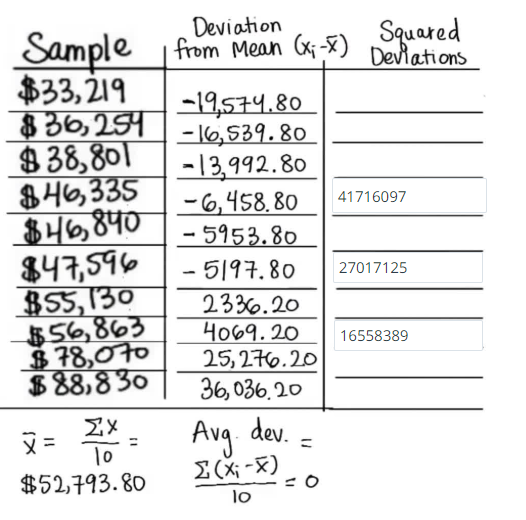 Sample Deviation from Mean (xᵢ-x̄) Squared Deviations
$33,219 -19,574.80
$36,254 -16,539.80
$38,801 -13,992.80
$46,335 -6,458.80 41716097
$46,840 -5953.80
$47,596 -5197.80 27017125
$55,130 2336.20
$56,863 4069.20 16558389
$78,070 25,276.20
$88,830 36,036.20
x̄ = Σx/10 = $52,793.80
Avg. dev. = Σ(xᵢ-x̄)/10 = 0